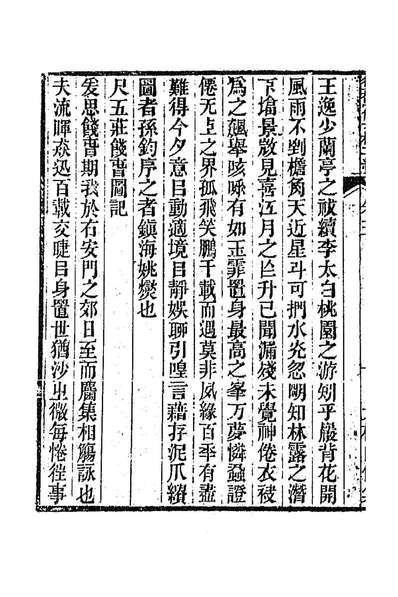 王逸少蘭亭之祓續李太白桃園之游矧乎巖背花開
風雨不到檐角天近星斗可捫水光忽明知林露之潛
下墖景散見喜江月之旣升已聞漏殘未覺神倦衣袂
爲之飄舉咳唾有如玉霏置身最高之峯万夢憐蝨證
僊无上之界孤飛笑鵬千載而遇莫非夙緣百年有盡
難得今夕意目動適境目靜娛聊引喤言藉存泥爪繢
圖者孫釣序之者鎮海姚燮也
尺五莊餞曹圖記
爰思餞曹期我於右安門之郊日至而麕集相觴詠也
夫流暉焱迅百載交睫目身置世猶沙虫微每惓徃事